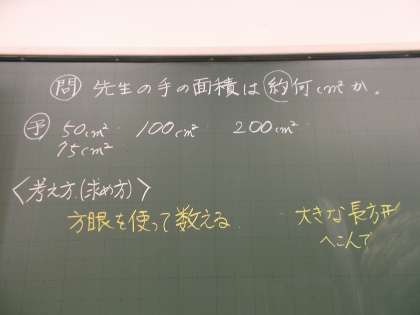 問 先生の手の面積は約何cm²か。
予 50cm² 100cm² 200cm²
75cm²
〈考え方(求め方)〉
方眼を使って数える
大きな長方形
へこんで